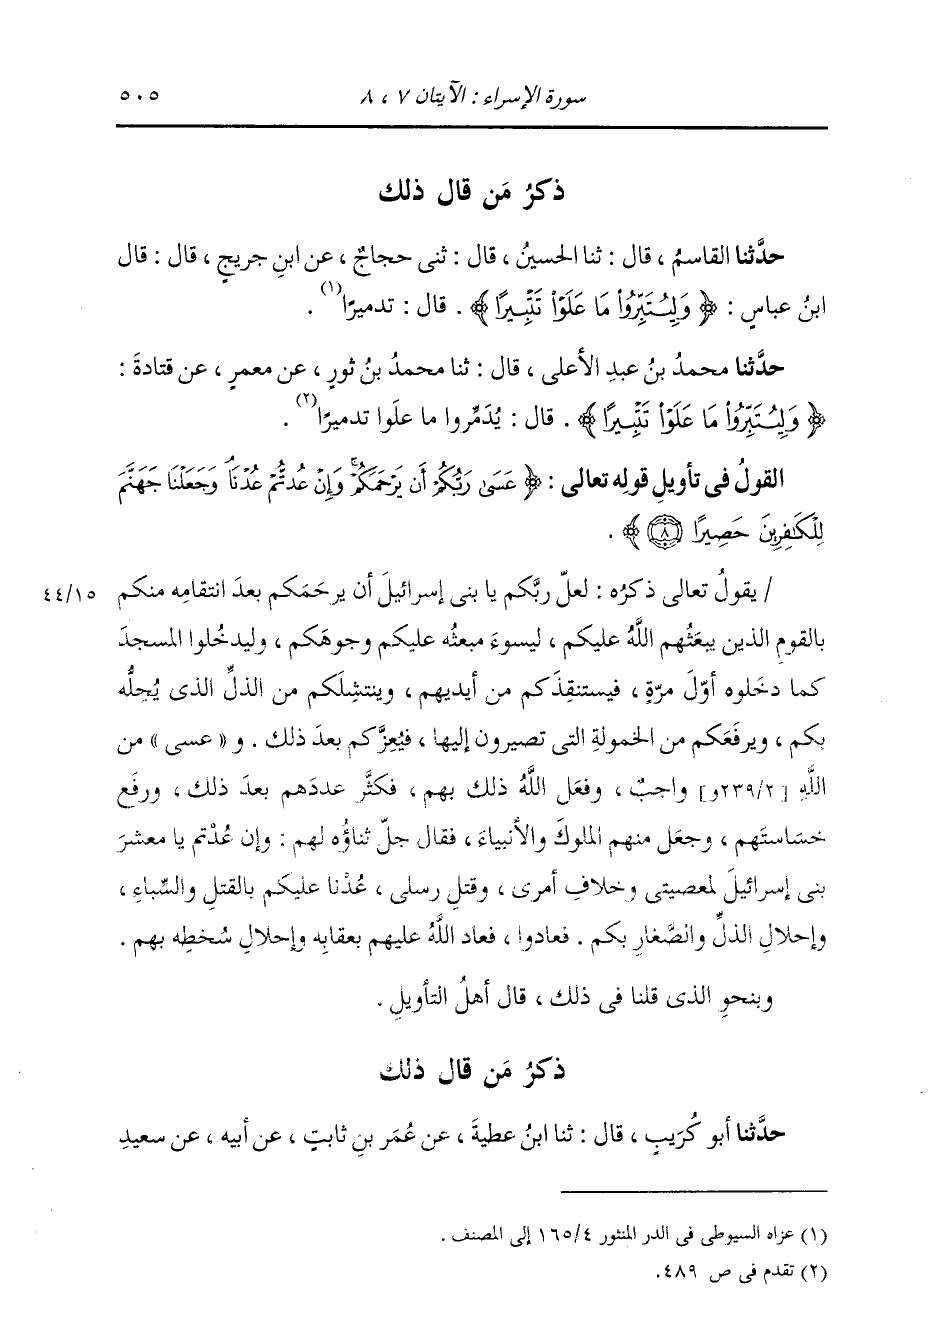 سورة الإسراء : الآيتان ٧ ، ٨
٥٠٥
ذكرُ مَن قال ذلك
حدَّثنا القاسمُ ، قال : ثنا الحسينُ ، قال : ثنى حجاجٌ ، عن ابنِ جريجٍ ، قال : قال
ابنُ عباسٍ : ﴿ وَلِيُتَبِّرُواْ مَا عَلَوۡاْ تَتۡبِيرًا ﴾ . قال : تدميرًا(١) .
حدَّثنا محمدُ بنُ عبدِ الأعلى ، قال : ثنا محمدُ بنُ ثورٍ ، عن معمرٍ ، عن قتادةَ :
﴿ وَلِيُتَبِّرُواْ مَا عَلَوۡاْ تَتۡبِيرًا ﴾ . قال : يُدَمِّروا ما علَوا تدميرًا(٢) .
القولُ فى تأويلِ قولِه تعالى : ﴿ عَسَىٰ رَبُّكُمۡ أَن يَرۡحَمَكُمۡۚ وَإِنۡ عُدتُّمۡ عُدۡنَاۚ وَجَعَلۡنَا جَهَنَّمَ
لِلۡكَٰفِرِينَ حَصِيرًا ٨ ﴾ .
/ يقولُ تعالى ذكرُه : لعلّ ربَّكم يا بنى إسرائيلَ أن يرحَمَكم بعدَ انتقامِه منكم ٤٤/١٥
بالقومِ الذين يبعَثُهم اللَّهُ عليكم ، ليسوءَ مبعثُه عليكم وجوهَكم ، وليدخُلوا المسجدَ
كما دخَلوه أوّلَ مرّةٍ ، فيستنقِذَكم من أيديهم ، وينتشِلَكم من الذلِّ الذى يُحِلُّه
بكم ، ويرفَعَكم من الخمولةِ التى تصيرون إليها ، فيُعِزَّكم بعدَ ذلك . و « عسى » من
اللَّهِ [٢٣٩/٢و] واجبٌ ، وفعَل اللَّهُ ذلك بهم ، فكثَّر عددَهم بعدَ ذلك ، ورفَع
خسَاستَهم ، وجعَل منهم الملوكَ والأنبياءَ ، فقال جلّ ثناؤُه لهم : وإن عُدْتم يا معشرَ
بنى إسرائيلَ لمعصيتى وخلافِ أمرى ، وقتلِ رسلى ، عُدْنا عليكم بالقتلِ والسِّباءِ ،
وإحلالِ الذلِّ والصَّغارِ بكم . فعادوا ، فعاد اللَّهُ عليهم بعقابِه وإحلالِ سُخطِه بهم .
وبنحوِ الذى قلنا فى ذلك ، قال أهلُ التأويلِ .
ذكرُ مَن قال ذلك
حدَّثنا أبو كُرَيبٍ ، قال : ثنا ابنُ عطيةَ ، عن عُمَر بنِ ثابتٍ ، عن أبيه ، عن سعيدِ
(١) عزاه السيوطى فى الدر المنثور ١٦٥/٤ إلى المصنف .
(٢) تقدم فى ص ٤٨٩.